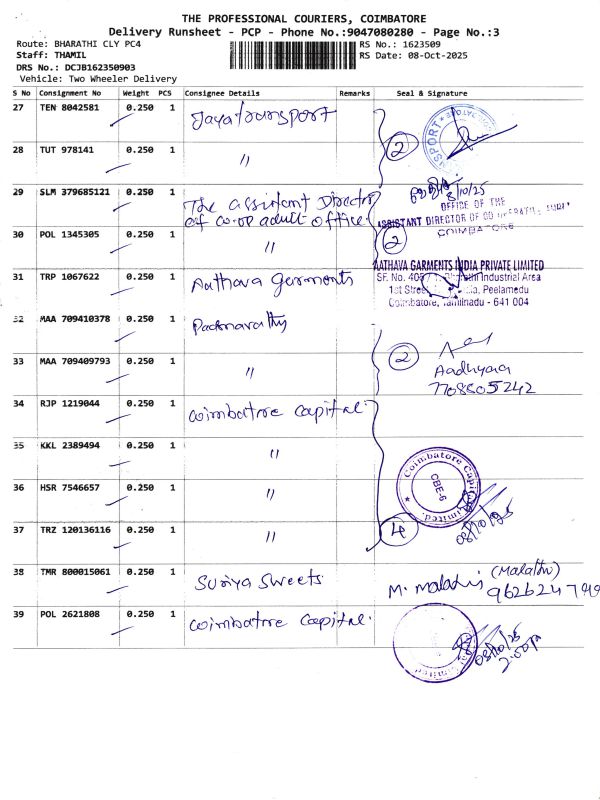 THE PROFESSIONAL COURIERS, COIMBATORE
Delivery Runsheet - PCP - Phone No.:9047080280 - Page No.:3
Route: BHARATHI CLY PC4 RS No.: 1623509
Staff: THAMIL RS Date: 08-Oct-2025
DRS No.: DCJB162350903
Vehicle: Two Wheeler Delivery
S No Consignment No Weight PCS Consignee Details Remarks Seal & Signature
27 TEN 8042581 0.250 1 Jaya transport
28 TUT 978141 0.250 1 〃 2
29 SLM 379685121 0.250 1 The assistant Director 8/10/25
of co-op adult office. OFFICE OF THE
ASSISTANT DIRECTOR OF CO OPERATIVE
30 POL 1345305 0.250 1 〃 2 COIMBATORE
AATHAVA GARMENTS INDIA PRIVATE LIMITED
31 TRP 1067622 0.250 1 Aathava garments SF. No. Industrial Area
1st Street, Peelamedu
Coimbatore, Tamilnadu - 641 004
32 MAA 709410378 0.250 1 Padmavathy
33 MAA 709409793 0.250 1 〃 2 Aadhyaa
7708805242
34 RJP 1219044 0.250 1 Coimbatore Capital.
35 KKL 2389494 0.250 1 〃
Coimbatore Capital Limited.
CBE-6
36 HSR 7546657 0.250 1 〃
37 TRZ 120136116 0.250 1 〃 4
38 TMR 800015061 0.250 1 Suriya Sweets M. Malathi (Malathi)
39 POL 2621808 0.250 1 Coimbatore Capital. 08/10/25
2:00 Limited